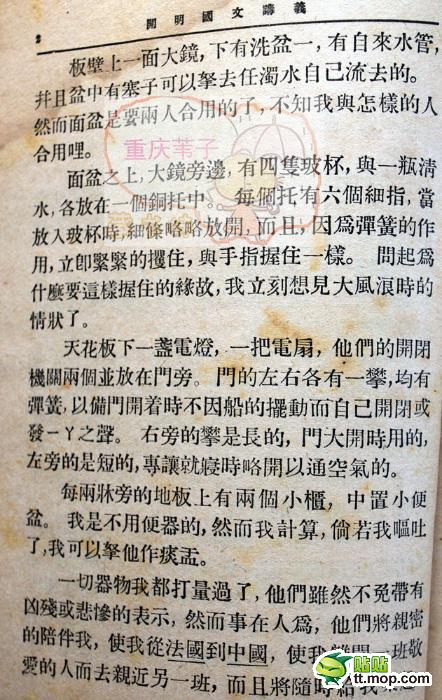 開明國文講義
2
板壁上一面大鏡，下有洗盆一，有自來水管，
幷且盆中有塞子可以拏去任濁水自己流去的。
然而面盆是要兩人合用的了，不知我與怎樣的人
合用哩。
面盆之上，大鏡旁邊，有四隻玻杯，與一瓶清
水，各放在一個銅托中。 每個托有六個細指，當
放入玻杯時，細條略略放開，而且，因爲彈簧的作
用，立卽緊緊的攫住，與手指握住一樣。 問起爲
什麼要這樣握住的緣故，我立刻想見大風浪時的
情狀了。
天花板下一盞電燈，一把電扇，他們的開閉
機關兩個並放在門旁。 門的左右各有一攀，均有
彈簧，以備門開着時不因船的擺動而自己開閉或
發ㄧㄚ之聲。 右旁的攀是長的，門大開時用的，
左旁的是短的，專讓就寢時略開以通空氣的。
每兩牀旁的地板上有兩個小櫃，中置小便
盆。 我是不用便器的，然而我計算，倘若我嘔吐
了，我可以拏他作痰盂。
一切器物我都打量過了，他們雖然不免帶有
凶殘或悲慘的表示，然而事在人爲，他們將親密
的陪伴我，使我從法國到中國，使我離開一班敬
愛的人而去親近另一班，而且將隨時給我
重庆苇子
贴贴
tt.mop.com